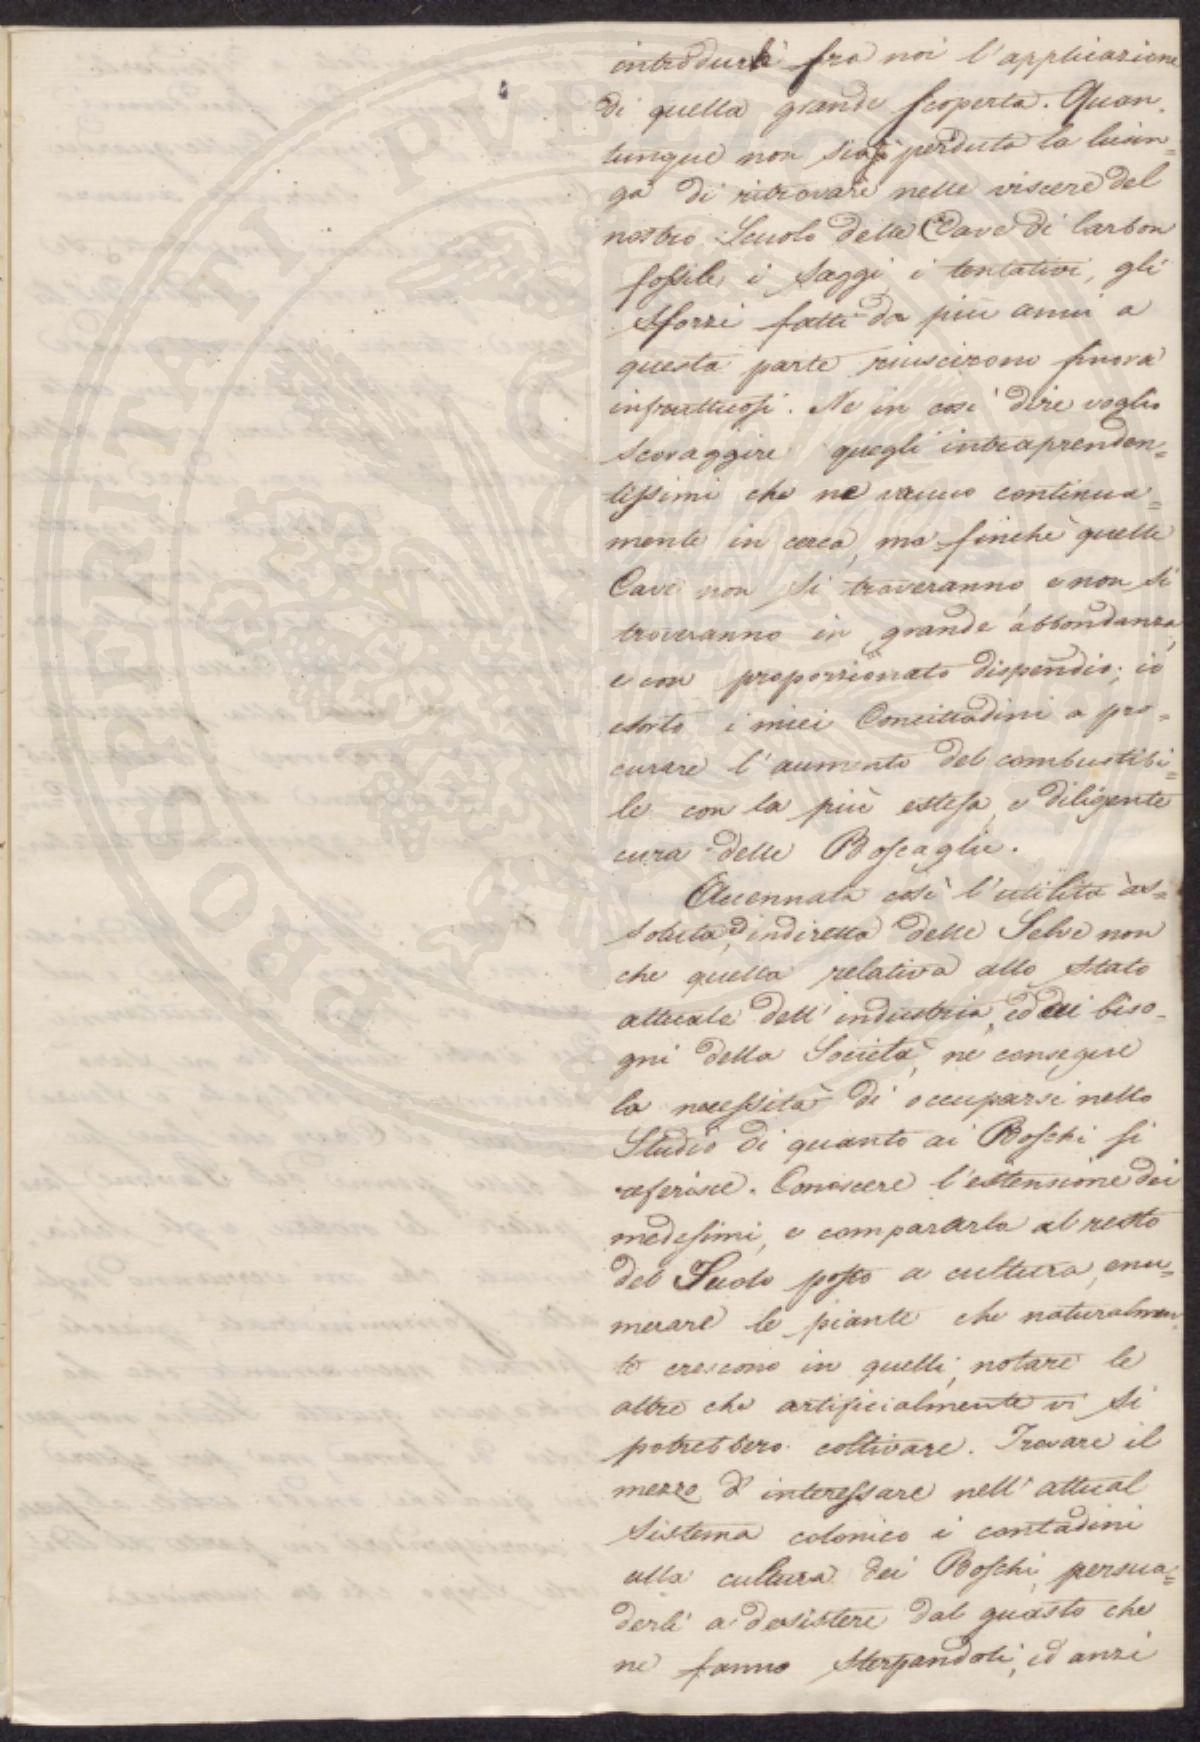 introdurre fra noi l'applicazione
di quella grande scoperta. Quan-
tunque non siasi perduta la lusin=
ga di ritrovare nelle viscere del
nostro Scuolo delle Cave di Carbon
fossile, i saggi, i tentativi, gli
sforzi fatti da più anni a
questa parte riuscirono finora
infruttuosi. Ne in così dire voglio
scoraggire quegli intraprenden=
tissimi che ne vanno continua=
mente in cerca, ma finchè quelle
Cave non si troveranno e non si
troveranno in grande abbondanza,
e con proporzionato dispendio; io
esorto i miei Concittadini a pro=
curare l'aumento del combustibi=
le con la più estesa, e diligente
cura delle Boscaglie.
Accennata così l'utilità as=
soluta, ed indiretta delle Selve non
che quella relativa allo stato
attuale dell'industria, ed ai biso-
gni della Società, ne consegue
la necessità di occuparsi nello
Studio di quanto ai Boschi si
referisce. Conoscere l'estensione dei
medesimi, e compararla al resto
del Suolo posto a cultura, enu=
merare le piante che naturalmen-
te crescono in quelli, notare le
altre che artificialmente vi si
potrebbero coltivare. Trovare il
mezzo d'interessare nell'attual
sistema colonico i contadini
alla cultura dei Boschi, persua=
derli a desistere dal guasto che
ne fanno sterpandoli, ed anzi
PROSPERITATI PVBLICAE